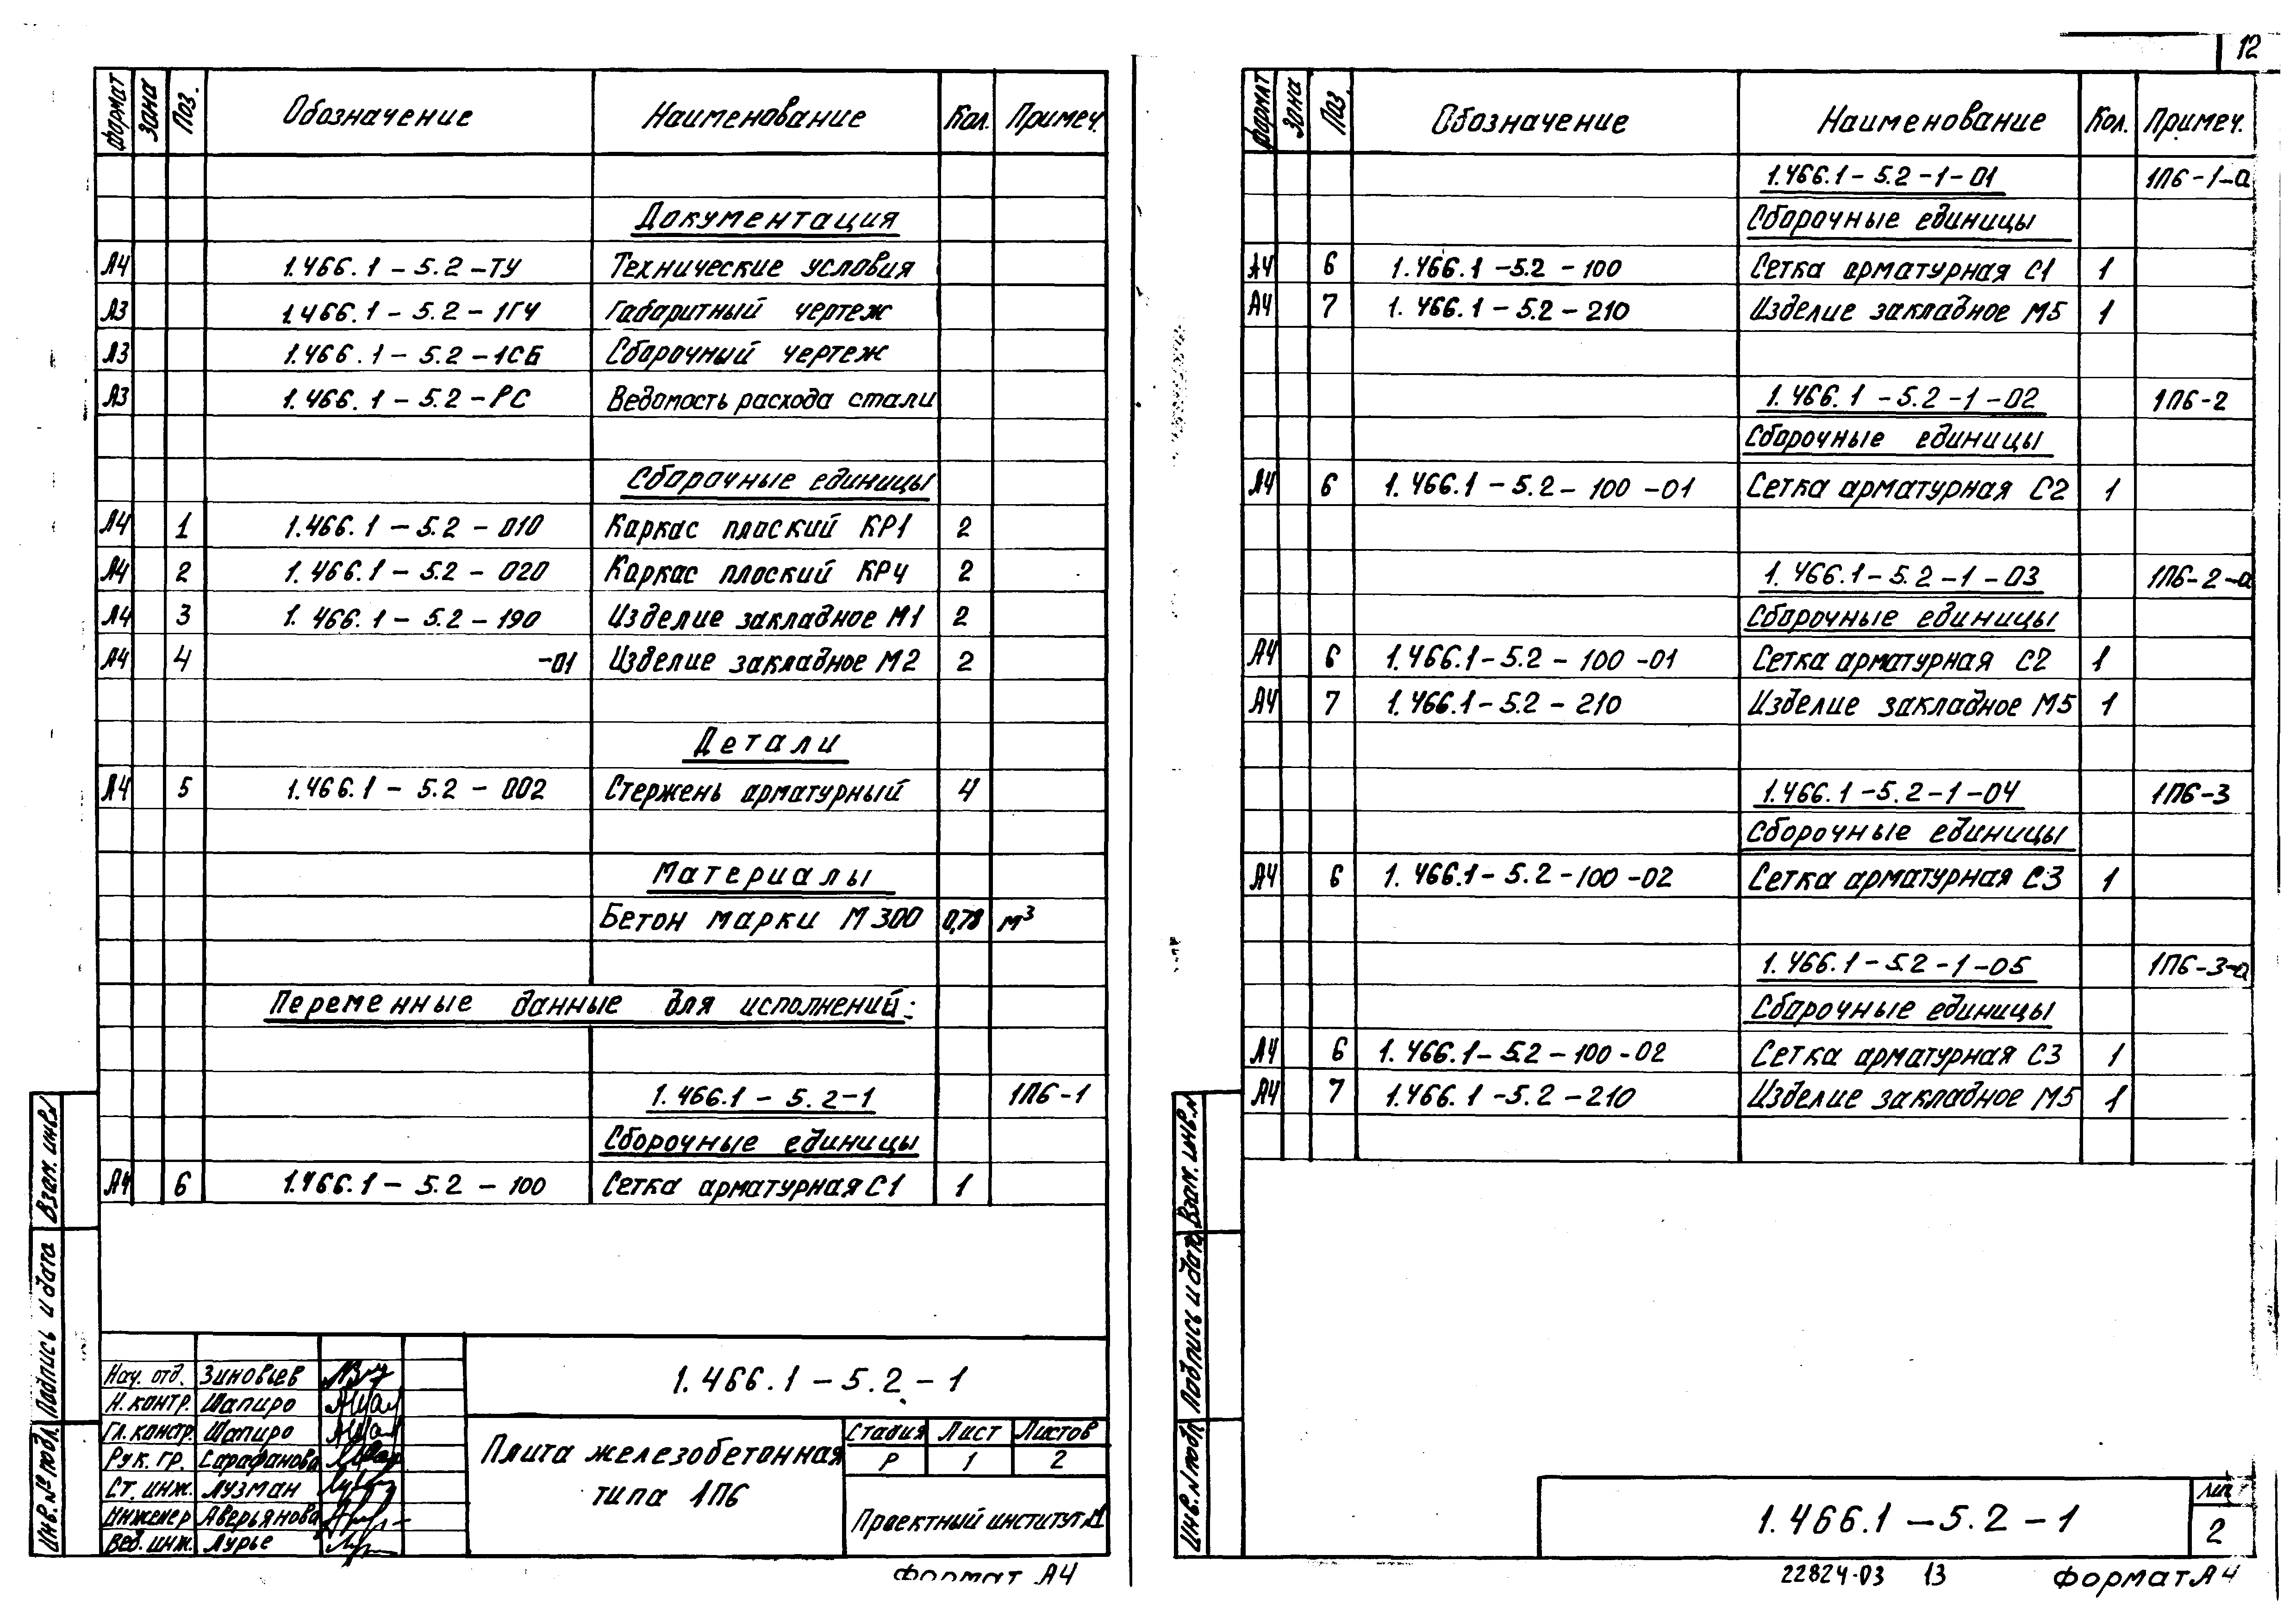 формат Зона Поз. Обозначение Наименование Кол. Примеч.
Документация
А4 1.466.1 – 5.2 – ТУ Технические условия
А3 1.466.1 – 5.2 – 1ГЧ Габаритный чертеж
А3 1.466.1 – 5.2 – 1СБ Сборочный чертеж
А3 1.466.1 – 5.2 – РС Ведомость расхода стали
Сборочные единицы
А4 1 1.466.1 – 5.2 – 010 Каркас плоский КР1 2
А4 2 1.466.1 – 5.2 – 020 Каркас плоский КР4 2
А4 3 1.466.1 – 5.2 – 190 Изделие закладное М1 2
А4 4 -01 Изделие закладное М2 2
Детали
А4 5 1.466.1 – 5.2 – 002 Стержень арматурный 4
Материалы
Бетон марки М300 0,78 м³
Переменные данные для исполнений:
1.466.1 – 5.2 – 1 1П6-1
Сборочные единицы
А4 6 1.466.1 – 5.2 – 100 Сетка арматурная С1 1
Взам. инв.
Подпись и дата
Инв. № подл.
Нач. отд. Зиновьев
Н. контр. Шапиро
Гл. констр. Шапиро
Рук. гр. Сарафанова
Ст. инж. Лузман
Инженер Аверьянова
Вед. инж. Лурье
1.466.1 – 5.2 – 1
Плита железобетонная
типа 1П6
Стадия Лист Листов
Р 1 2
Проектный институт №1
Формат А4
12
формат Зона Поз. Обозначение Наименование Кол. Примеч.
1.466.1 – 5.2 – 1 – 01 1П6-1-а
Сборочные единицы
А4 6 1.466.1 – 5.2 – 100 Сетка арматурная С1 1
А4 7 1.466.1 – 5.2 – 210 Изделие закладное М5 1
1.466.1 – 5.2 – 1 – 02 1П6-2
Сборочные единицы
А4 6 1.466.1 – 5.2 – 100 – 01 Сетка арматурная С2 1
1.466.1 – 5.2 – 1 – 03 1П6-2-а
Сборочные единицы
А4 6 1.466.1 – 5.2 – 100 – 01 Сетка арматурная С2 1
А4 7 1.466.1 – 5.2 – 210 Изделие закладное М5 1
1.466.1 – 5.2 – 1 – 04 1П6-3
Сборочные единицы
А4 6 1.466.1 – 5.2 – 100 – 02 Сетка арматурная С3 1
1.466.1 – 5.2 – 1 – 05 1П6-3-а
Сборочные единицы
А4 6 1.466.1 – 5.2 – 100 – 02 Сетка арматурная С3 1
А4 7 1.466.1 – 5.2 – 210 Изделие закладное М5 1
Взам. инв. №
Подпись и дата
Инв. № подл.
1.466.1 – 5.2 – 1
Лист
2
22824-03 13 Формат А4